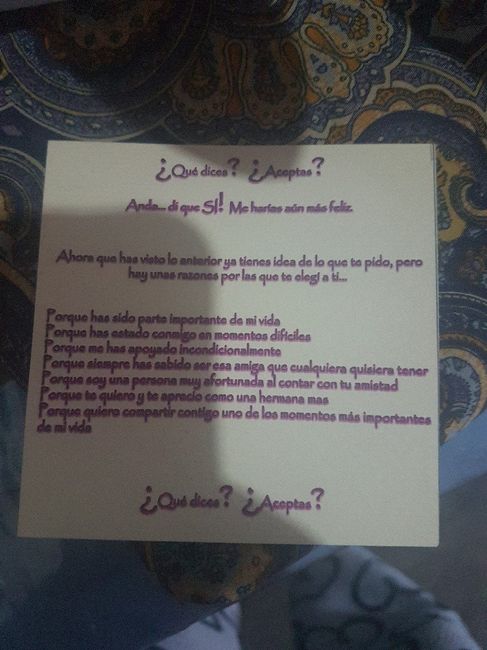 ¿Qué dices? ¿Aceptas?
Anda... di que SI! Me harías aún más feliz.
Ahora que has visto lo anterior ya tienes idea de lo que te pido, pero
hay unas razones por las que te elegí a ti...
Porque has sido parte importante de mi vida
Porque has estado conmigo en momentos difíciles
Porque me has apoyado incondicionalmente
Porque siempre has sabido ser esa amiga que cualquiera quisiera tener
Porque soy una persona muy afortunada al contar con tu amistad
Porque te quiero y te aprecio como una hermana mas
Porque quiero compartir contigo uno de los momentos más importantes
de mi vida
¿Qué dices? ¿Aceptas?